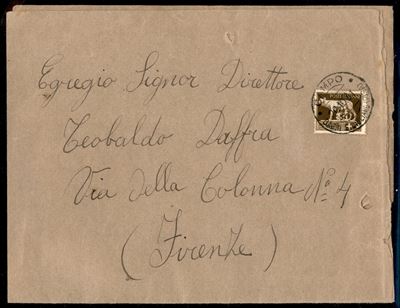 Egregio Signor Direttore
Teobaldo Daffra
Via della Colonna Nº 4
(Firenze)